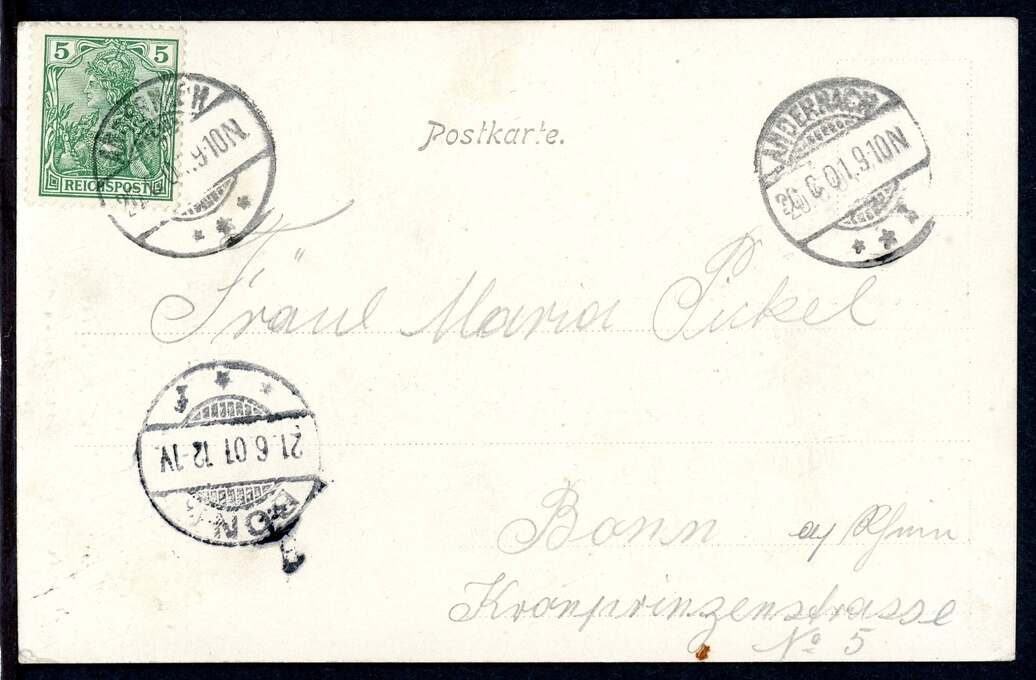 5 5
REICHSPOST
ANDERNACH
9-10N.
Postkarte.
ANDERNACH
20.6.01.9-10N
Fräul Maria Pickel
21.6.01.12-1V.
BONN
Bonn a/ Rhein
Kronprinzenstrasse
No 5